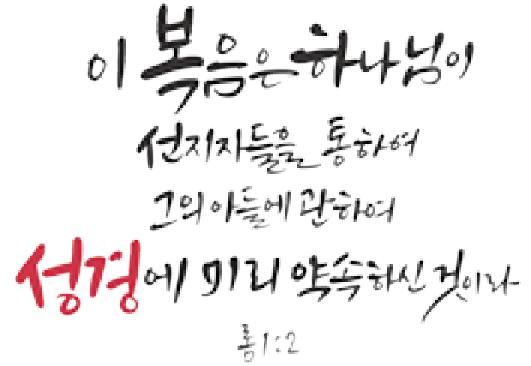 이 복음은 하나님이
선지자들을 통하여
그의 아들에 관하여
성경에 미리 약속하신 것이라
롬 1:2